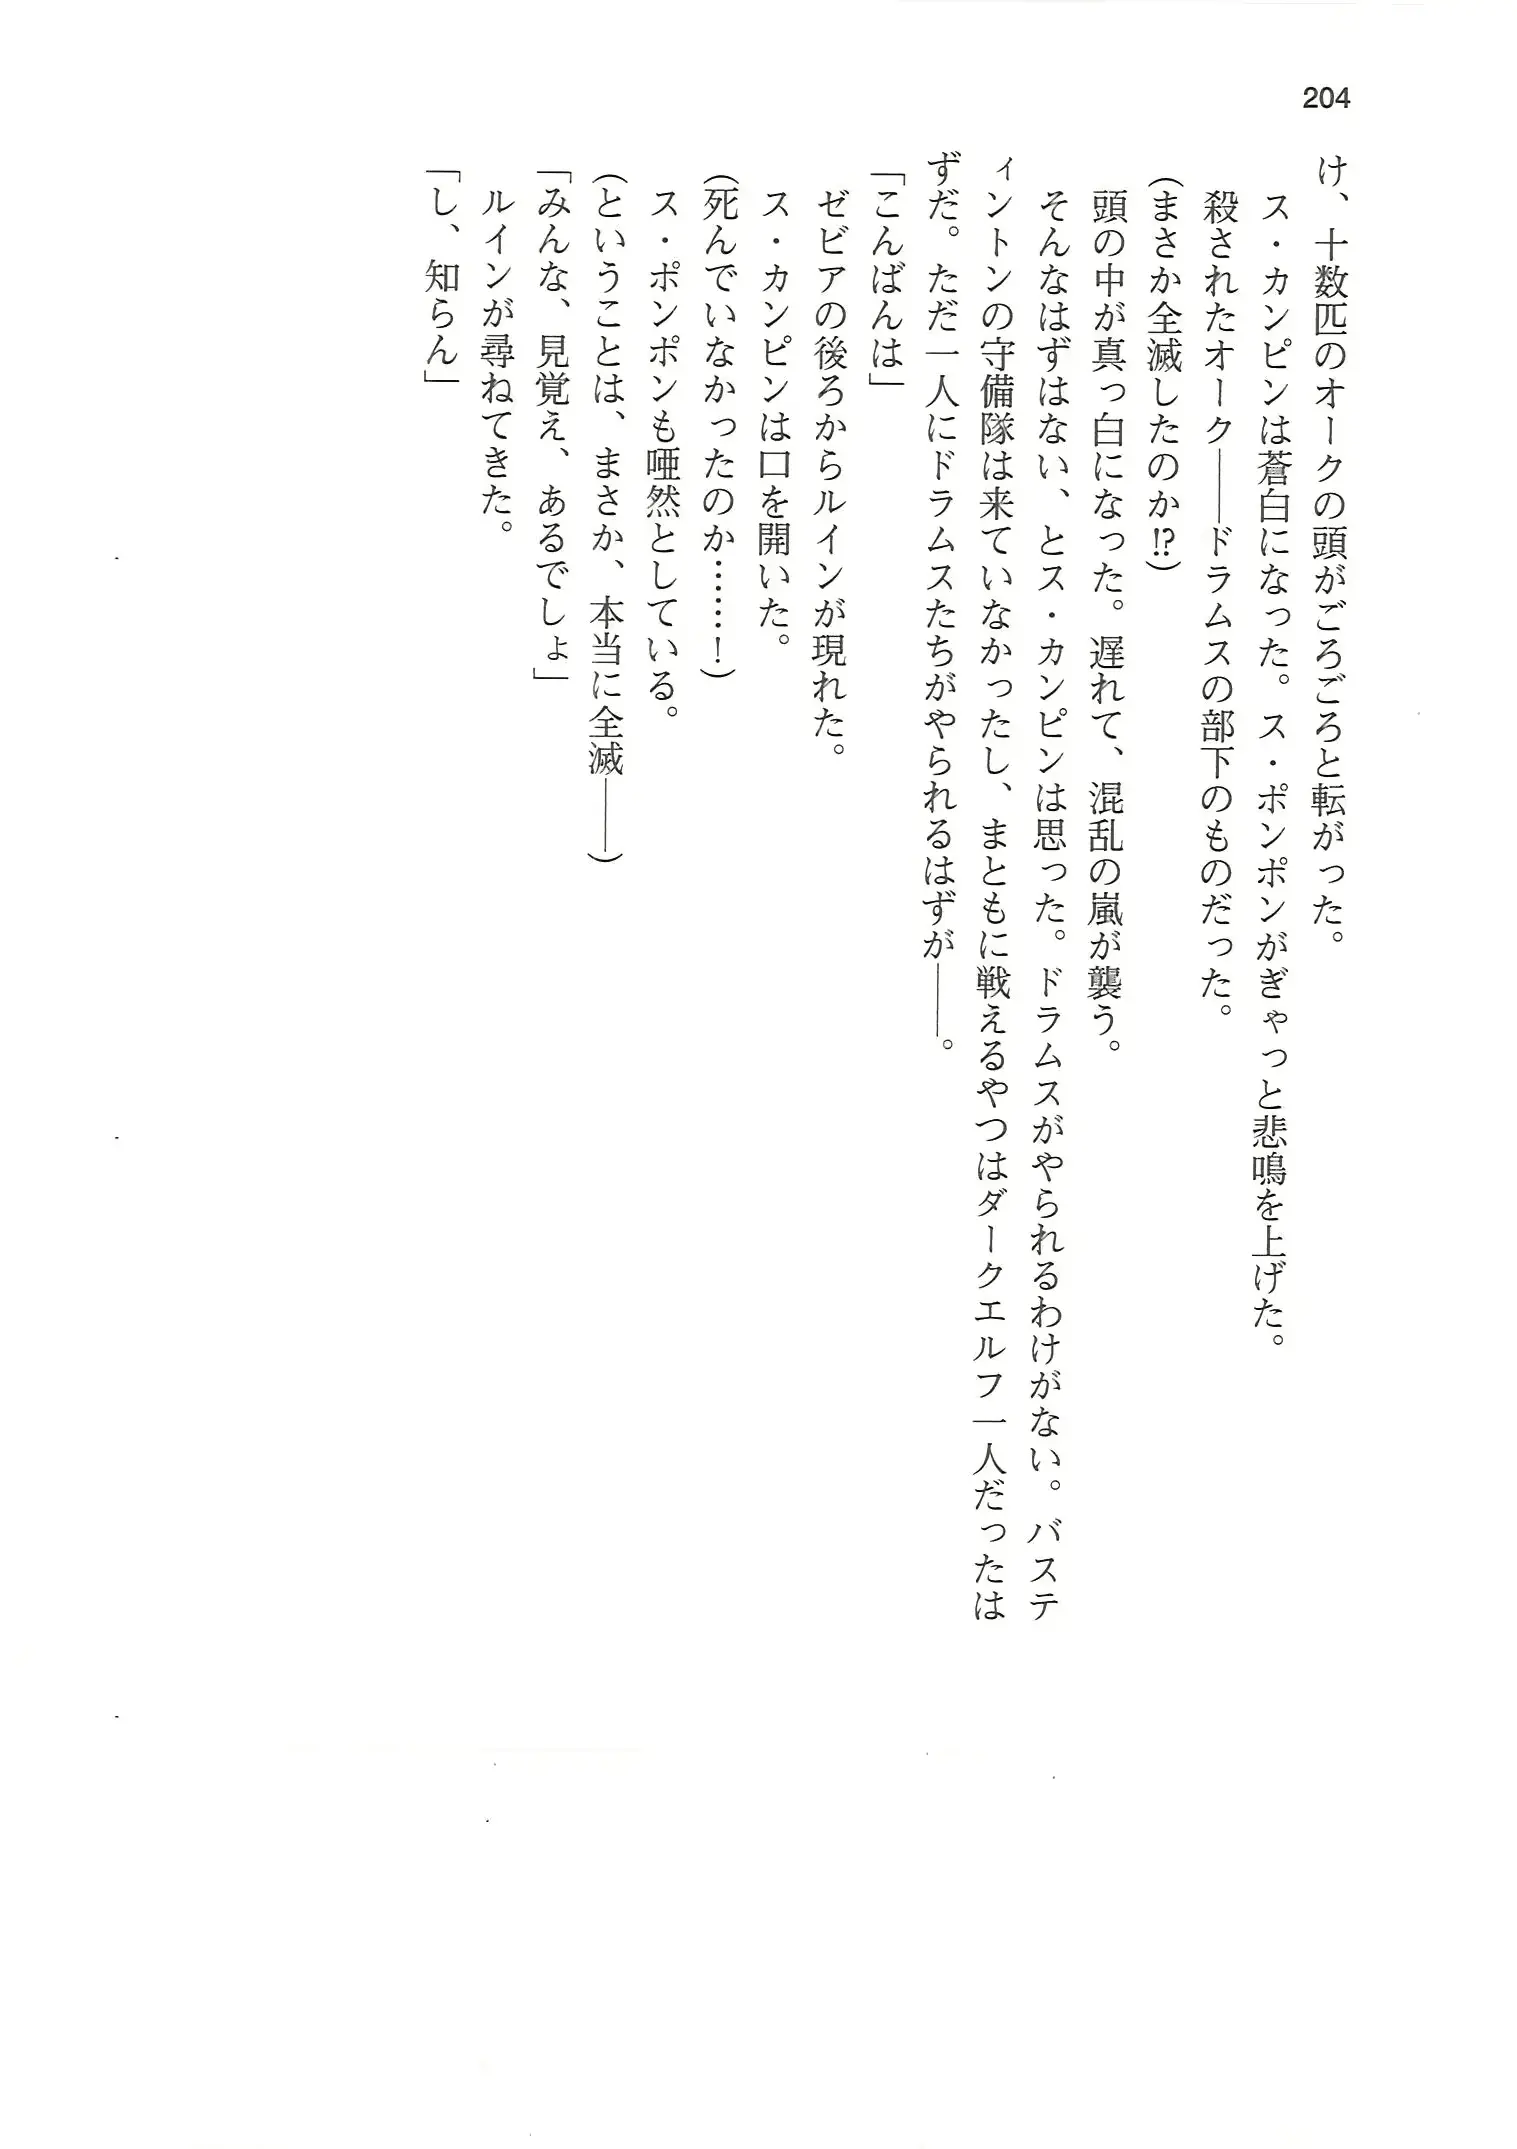 204
け、十数匹のオークの頭がごろごろと転がった。
ス・カンピンは蒼白になった。ス・ポンポンがぎゃっと悲鳴を上げた。
殺されたオーク――ドラムスの部下のものだった。
(まさか全滅したのか!?)
頭の中が真っ白になった。遅れて、混乱の嵐が襲う。
そんなはずはない、とス・カンピンは思った。ドラムスがやられるわけがない。バステ
ィントンの守備隊は来ていなかったし、まともに戦えるやつはダークエルフ一人だったは
ずだ。ただ一人にドラムスたちがやられるはずが――。
「こんばんは」
ゼビアの後ろからルインが現れた。
ス・カンピンは口を開いた。
(死んでいなかったのか……!)
ス・ポンポンも唖然としている。
(ということは、まさか、本当に全滅――)
「みんな、見覚え、あるでしょ」
ルインが尋ねてきた。
「し、知らん」